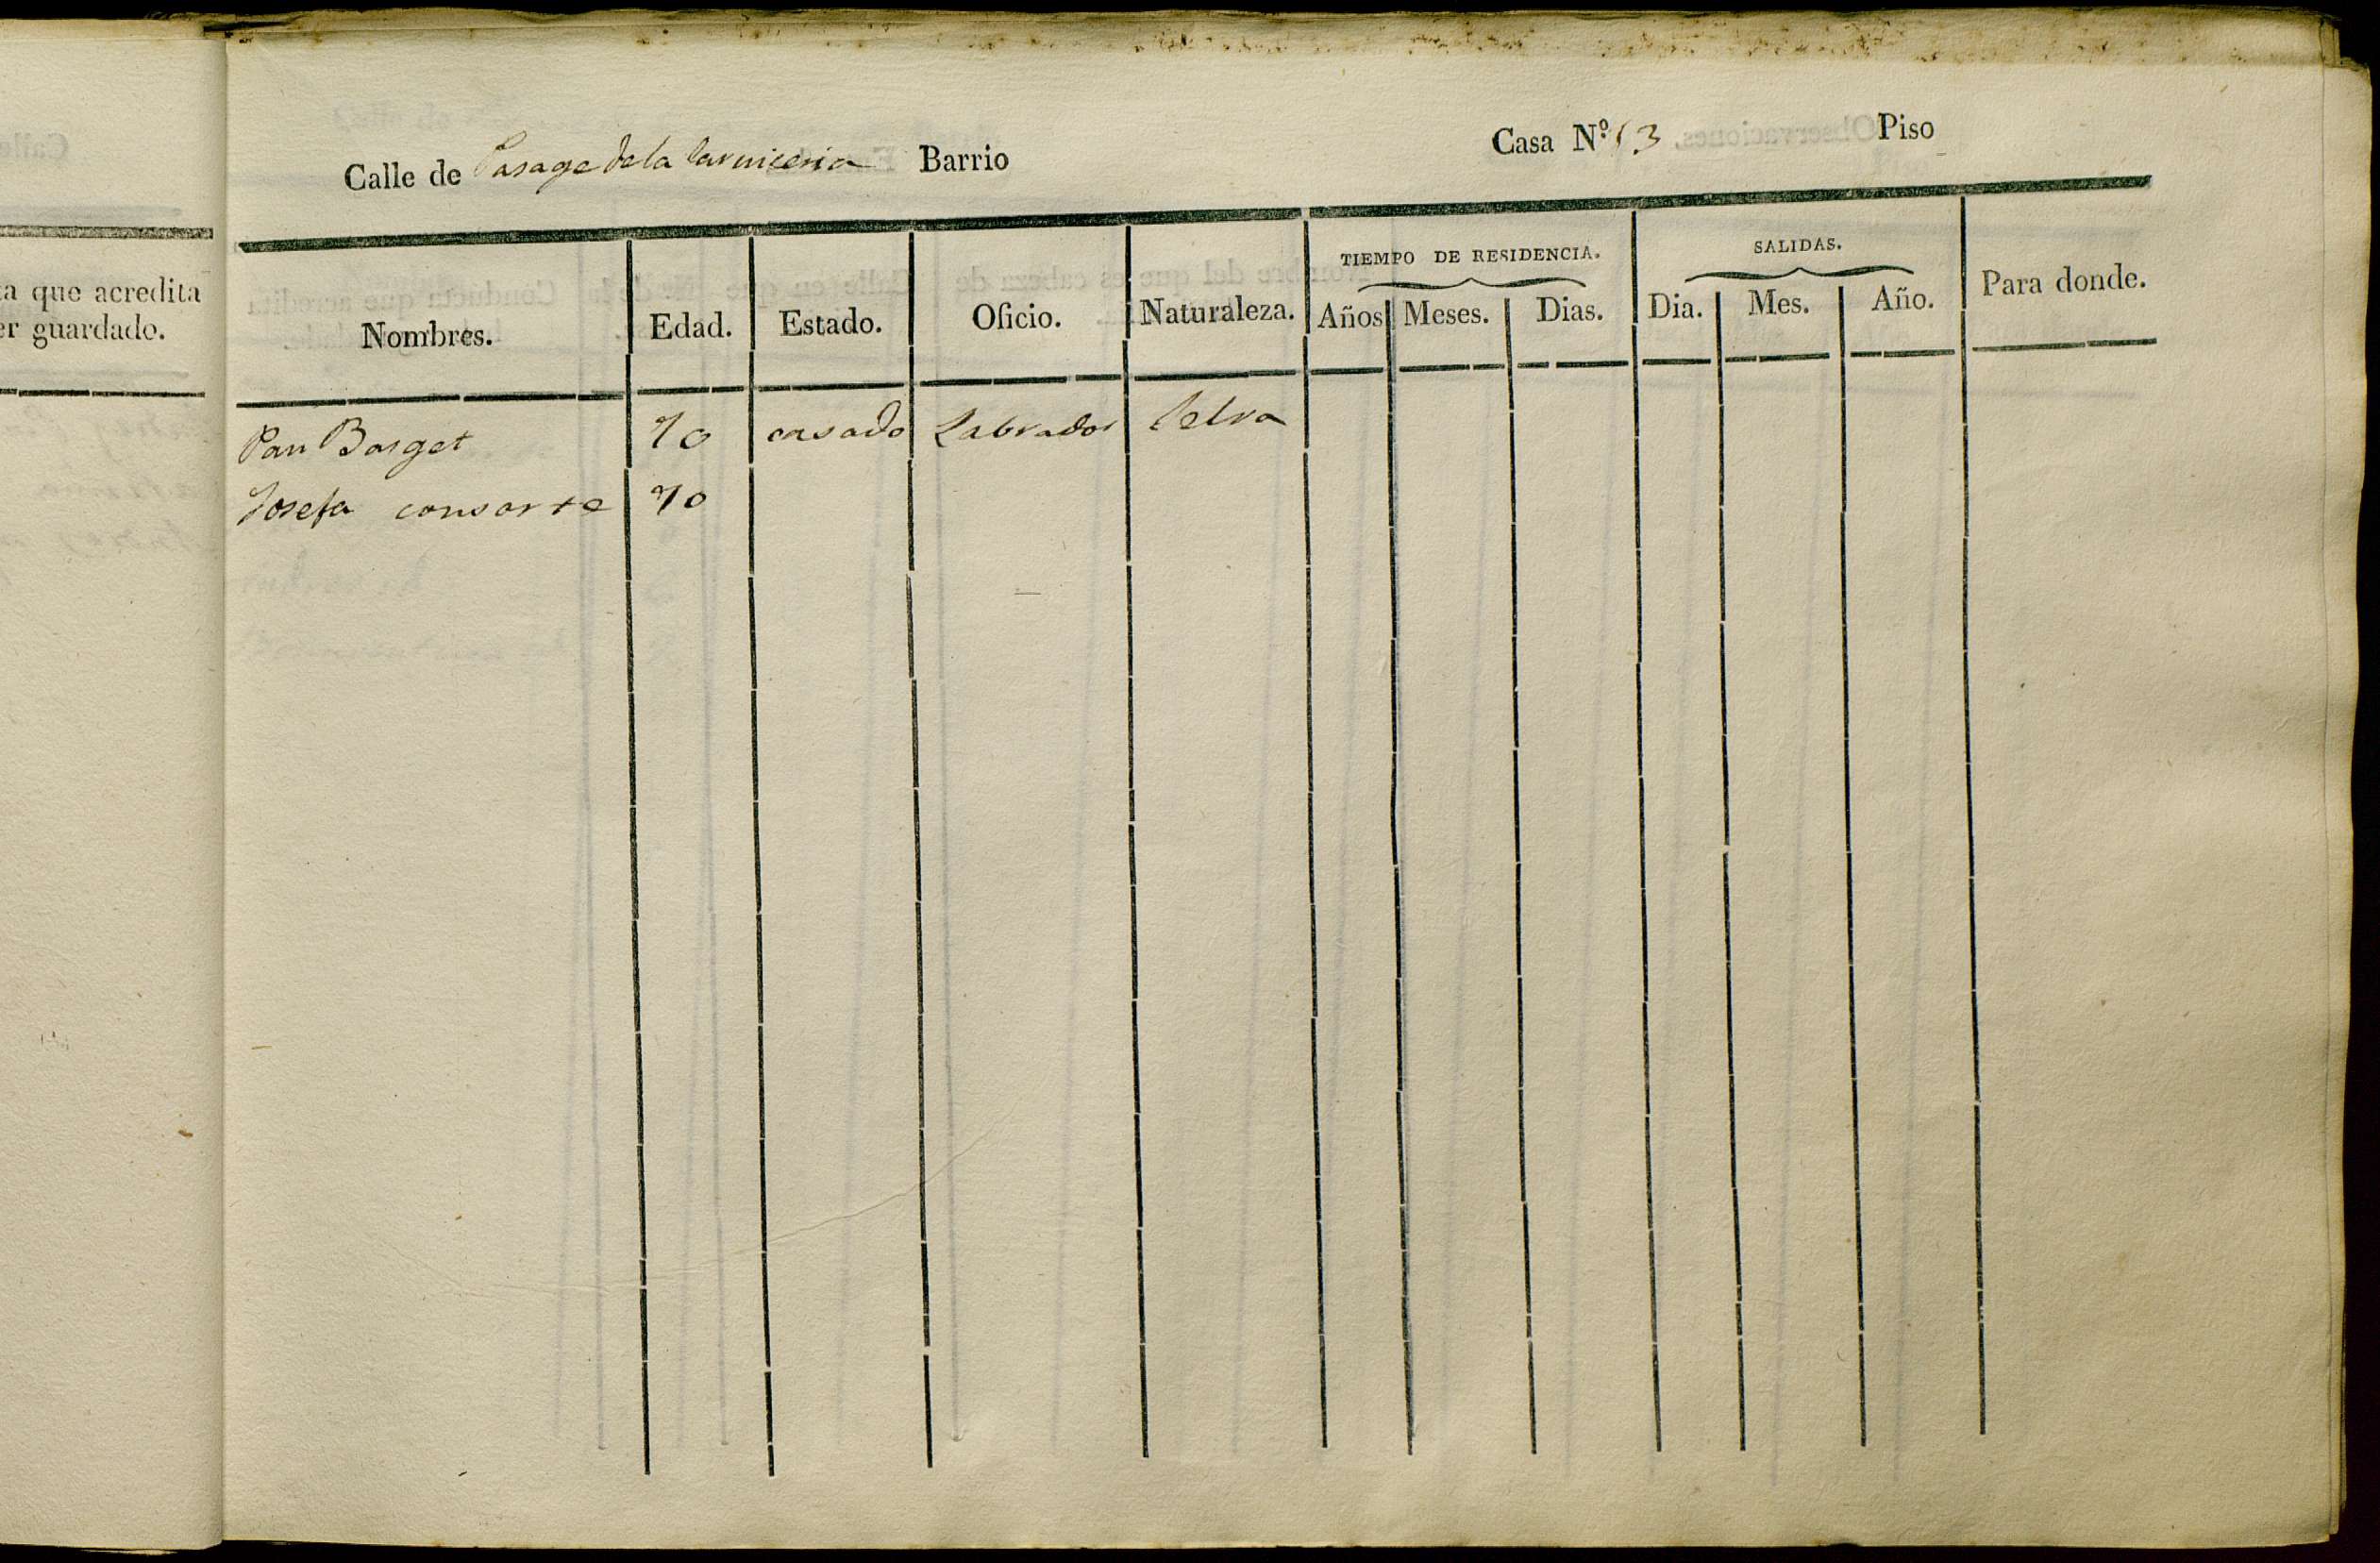 Calle de Pasage de la Carniceria Barrio Casa N.º 13 Piso
ta que acredita
er guardado.
TIEMPO DE RESIDENCIA. SALIDAS.
Nombres. Edad. Estado. Oficio. Naturaleza. Años Meses. Dias. Dia. Mes. Año. Para donde.
Pau Barget 70 casado Labrador Selva
Josefa consorte 70